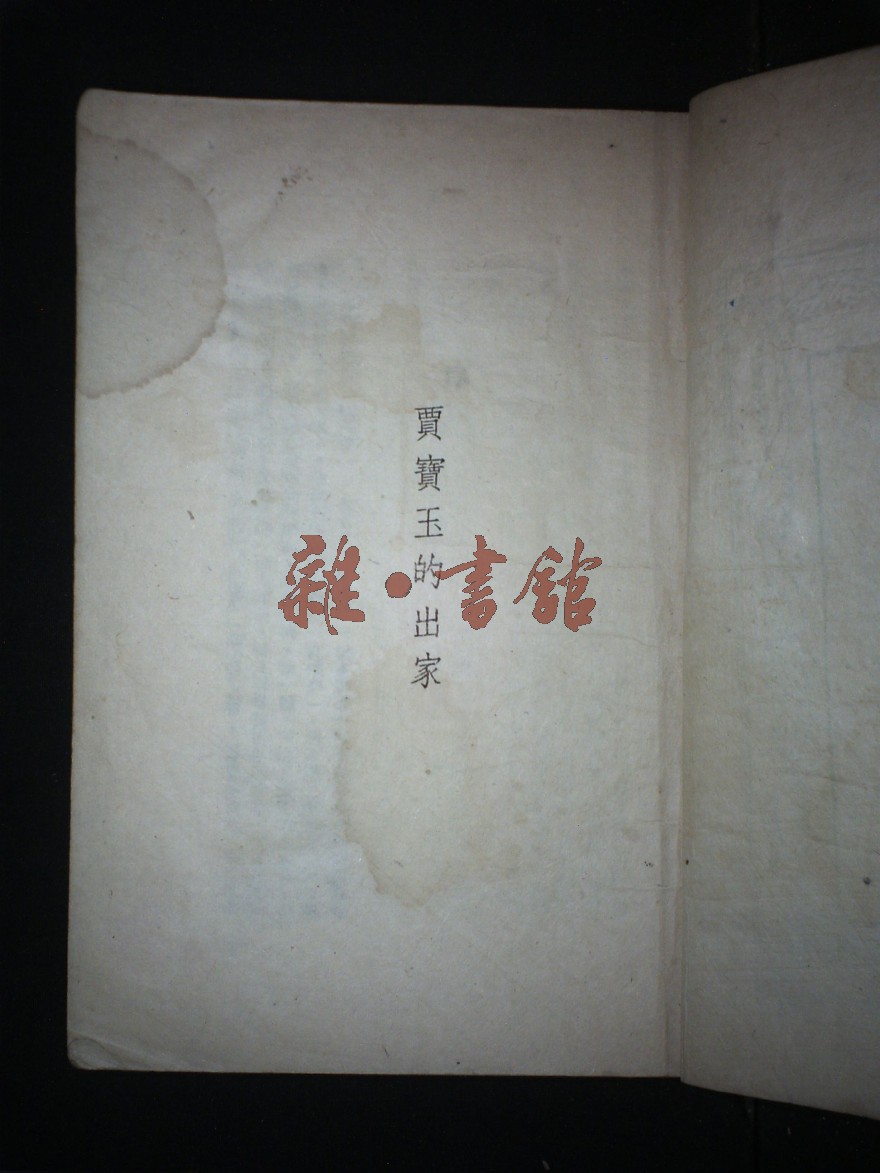 賈寶玉的出家
雜·書館